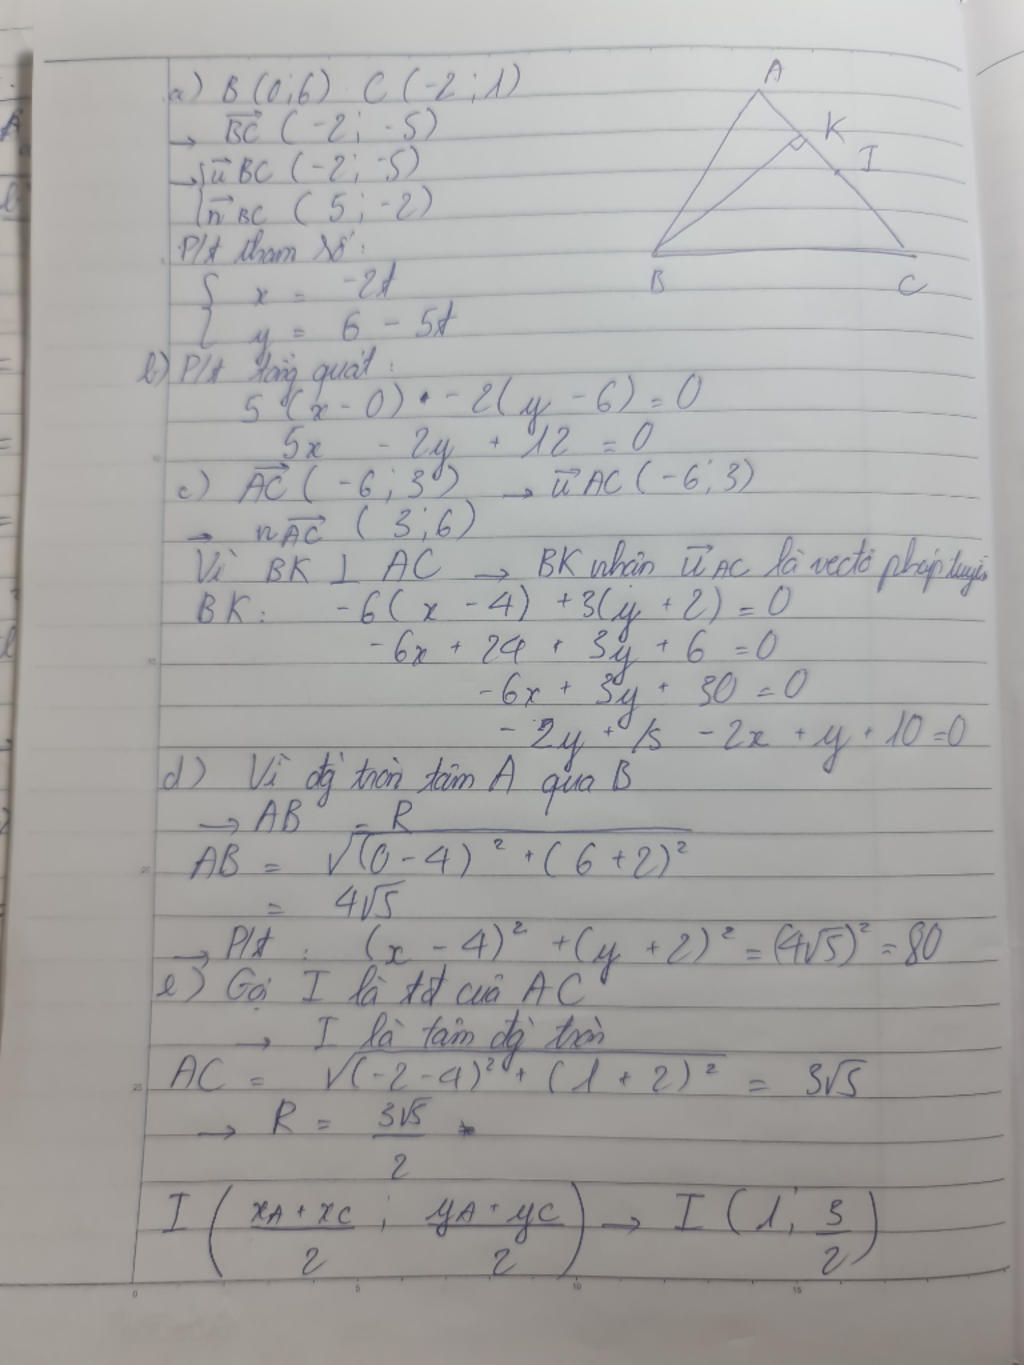 a) B (0;6) C (-2;1)
→ BC (-2; -5)
→ { u BC (-2; -5)
n BC (5; -2)
P/t tham số:
{ x = -2t
y = 6 - 5t
b) P/t tổng quát:
5 (x - 0) . - 2(y - 6) = 0
5x - 2y + 12 = 0
c) AC (-6; 3) → u AC (-6; 3)
→ n AC (3; 6)
Vì BK ⊥ AC → BK nhận u AC là vectơ pháp tuyến
BK: -6(x - 4) + 3(y + 2) = 0
-6x + 24 + 3y + 6 = 0
-6x + 3y + 30 = 0
-2x + y + 10 = 0
d) Vì đg tròn tâm A qua B
→ AB = R
AB = √(0 - 4)² + (6 + 2)²
= 4√5
→ P/t: (x - 4)² + (y + 2)² = (4√5)² = 80
e) Gọi I là tđ của AC
→ I là tâm đg tròn
AC = √(-2 - 4)² + (1 + 2)² = 3√5
→ R = 3√5 / 2
I ( xA + xC / 2 ; yA + yC / 2 ) → I (1; 3/2)
A
K
I
B
C